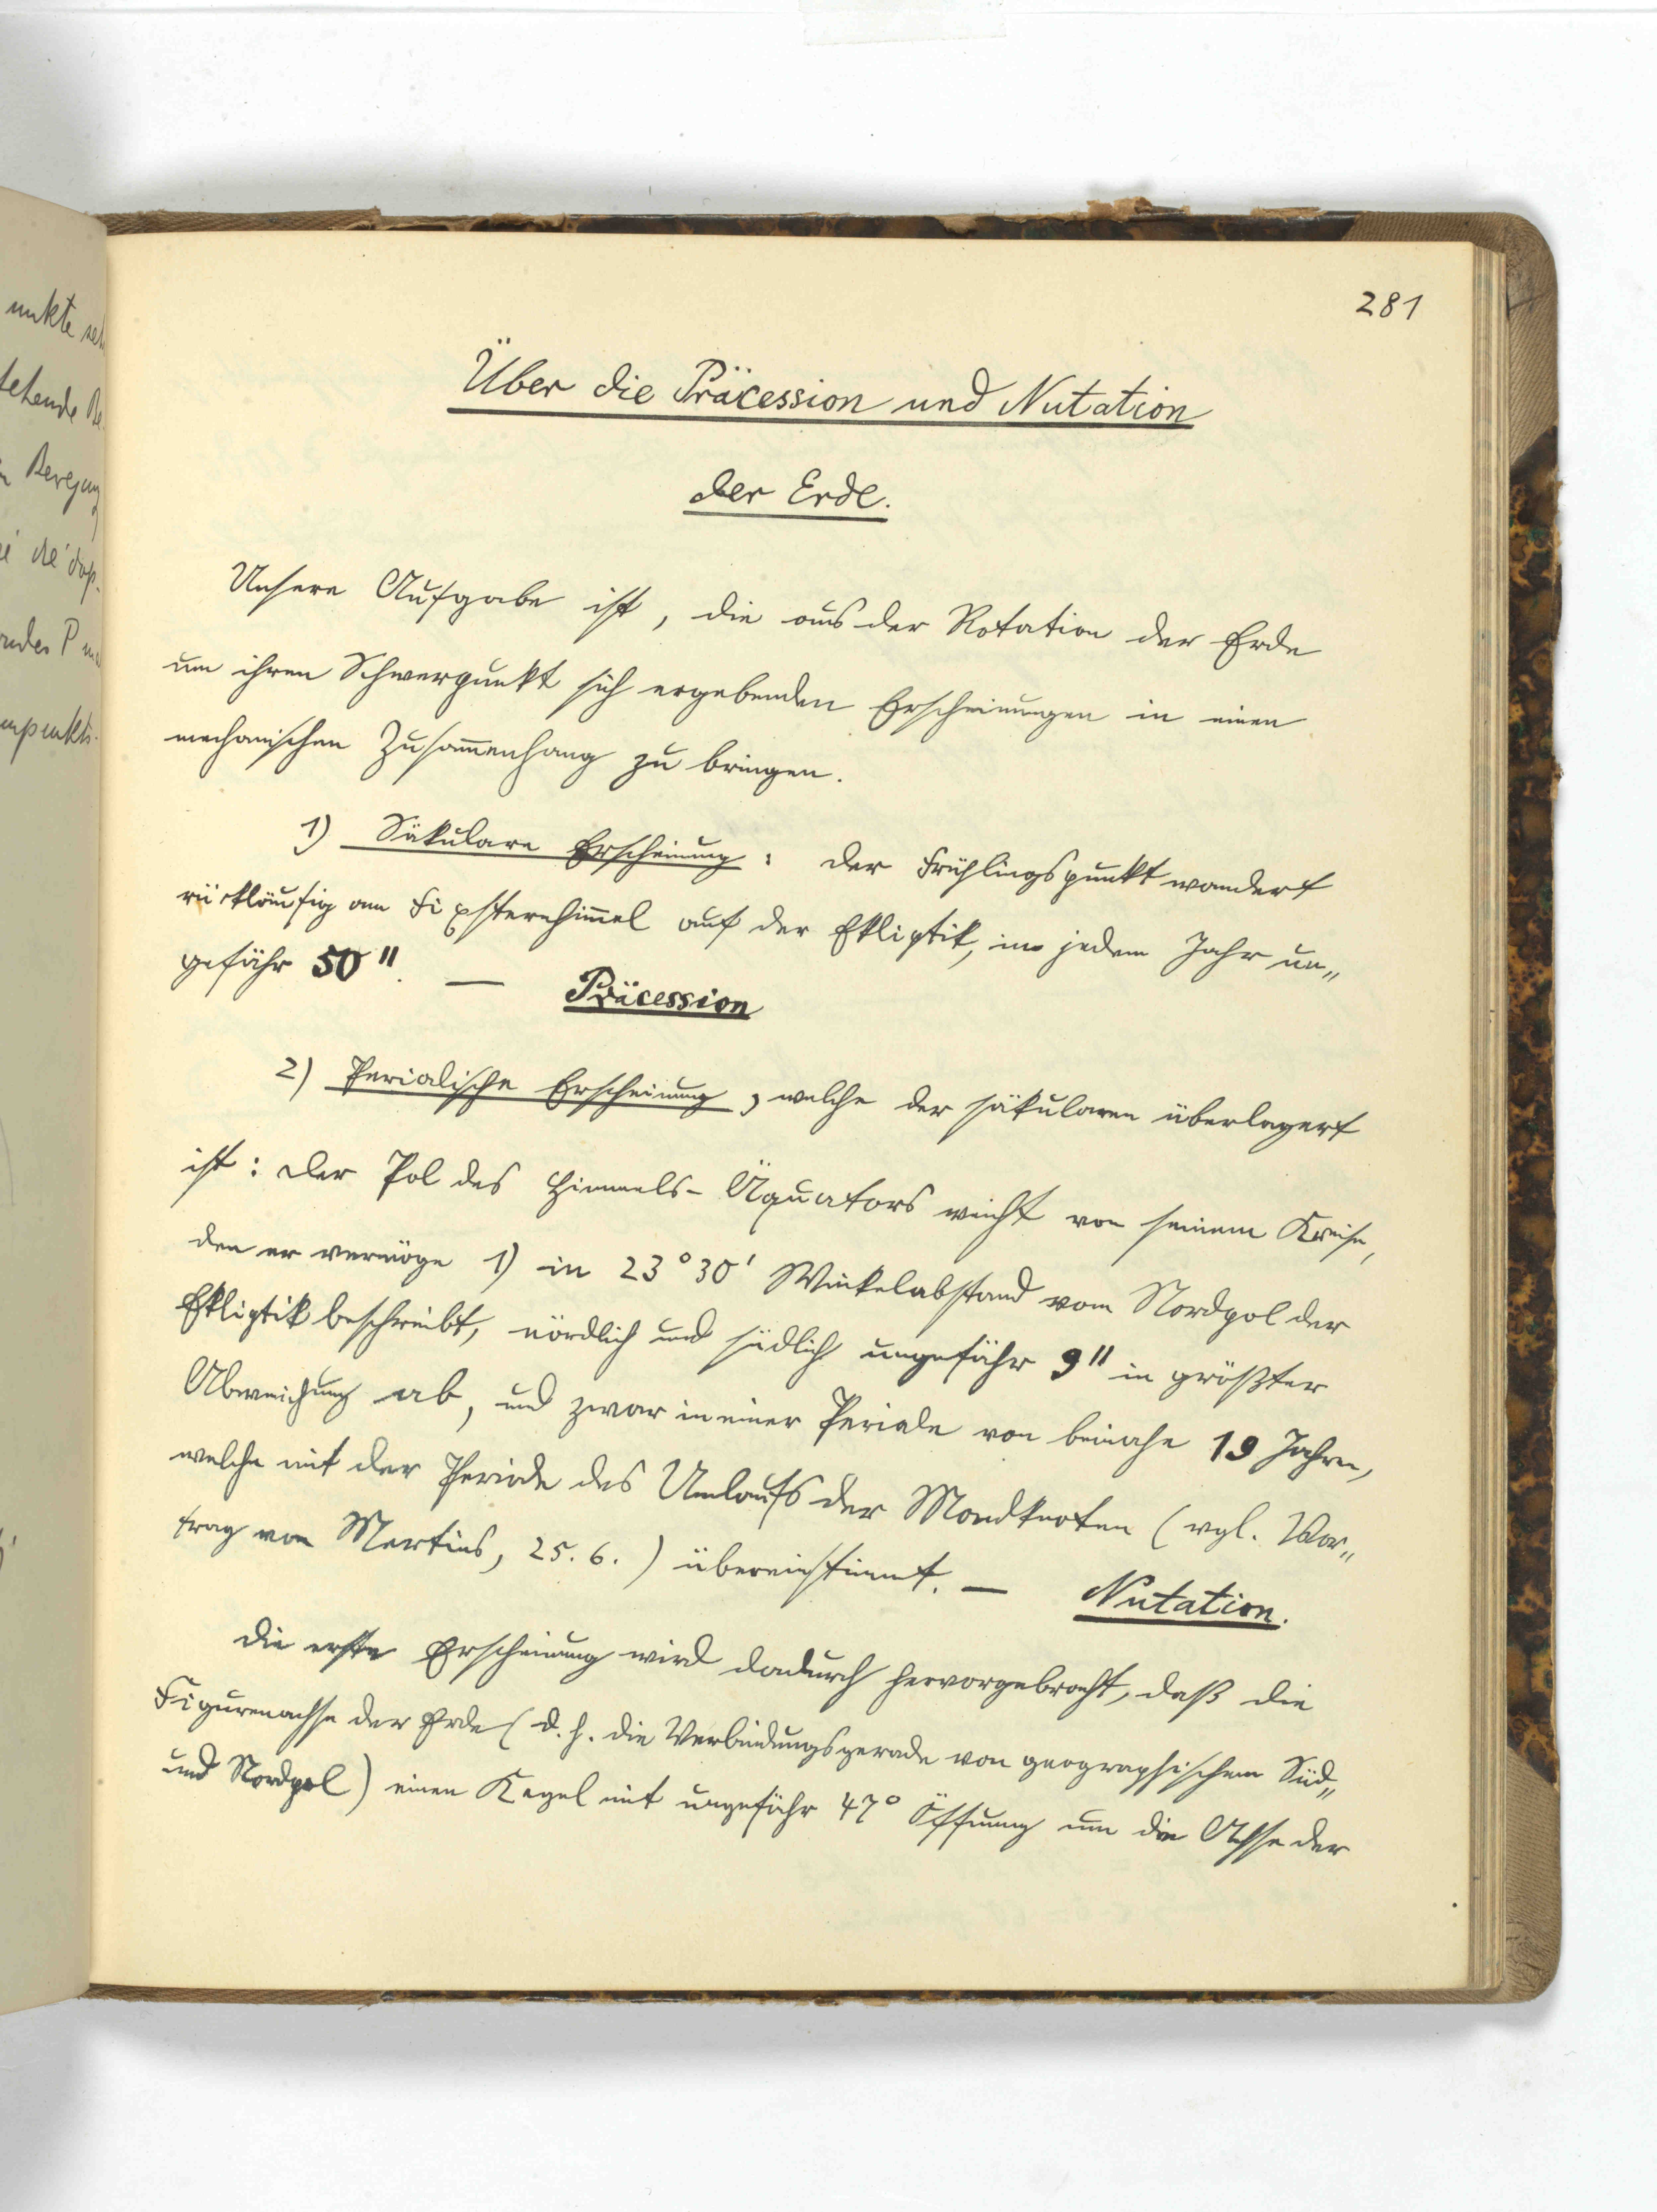 281
Über die Präcession und Nutation
der Erde.
Unsere Aufgabe ist, die aus der Rotation der Erde
um ihren Schwerpunkt sich ergebenden Erscheinungen in einen
mechanischen Zusammenhang zu bringen.
1) Säkulare Erscheinung: Der Frühlingspunkt wandert
rückläufig am Fixsternhimmel auf der Ekliptik, in jedem Jahr un„
gefähr 50". — Präcession
2) Periodische Erscheinung, welche der säkularen überlagert
ist: Der Pol des Himmels-Äquators weicht von seinem Kreise,
den er vermöge 1) in 23°30' Winkelabstand vom Nordpol der
Ekliptik beschreibt, nördlich und südlich ungefähr 9" in größter
Abweichung ab, und zwar in einer Periode von beinahe 19 Jahren,
welche mit der Periode des Umlaufs der Mondknoten (vgl. Vor„
trag von Martins, 25.6.) übereinstimmt. — Nutation.
Die erste Erscheinung wird dadurch hervorgebracht, daß die
Figurenachse der Erde (d. h. die Verbindungsgerade von geographischem Süd„
und Nordpol) einen Kegel mit ungefähr 47° Öffnung um die Achse der
unkte
tehende Be
Bewegung
die dop-
P
mpunkts.